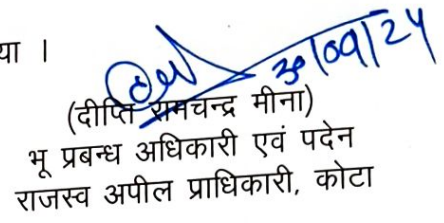 या ।
30/09/24
(दीप्ति रामचन्द्र मीना)
भू प्रबन्ध अधिकारी एवं पदेन
राजस्व अपील प्राधिकारी, कोटा